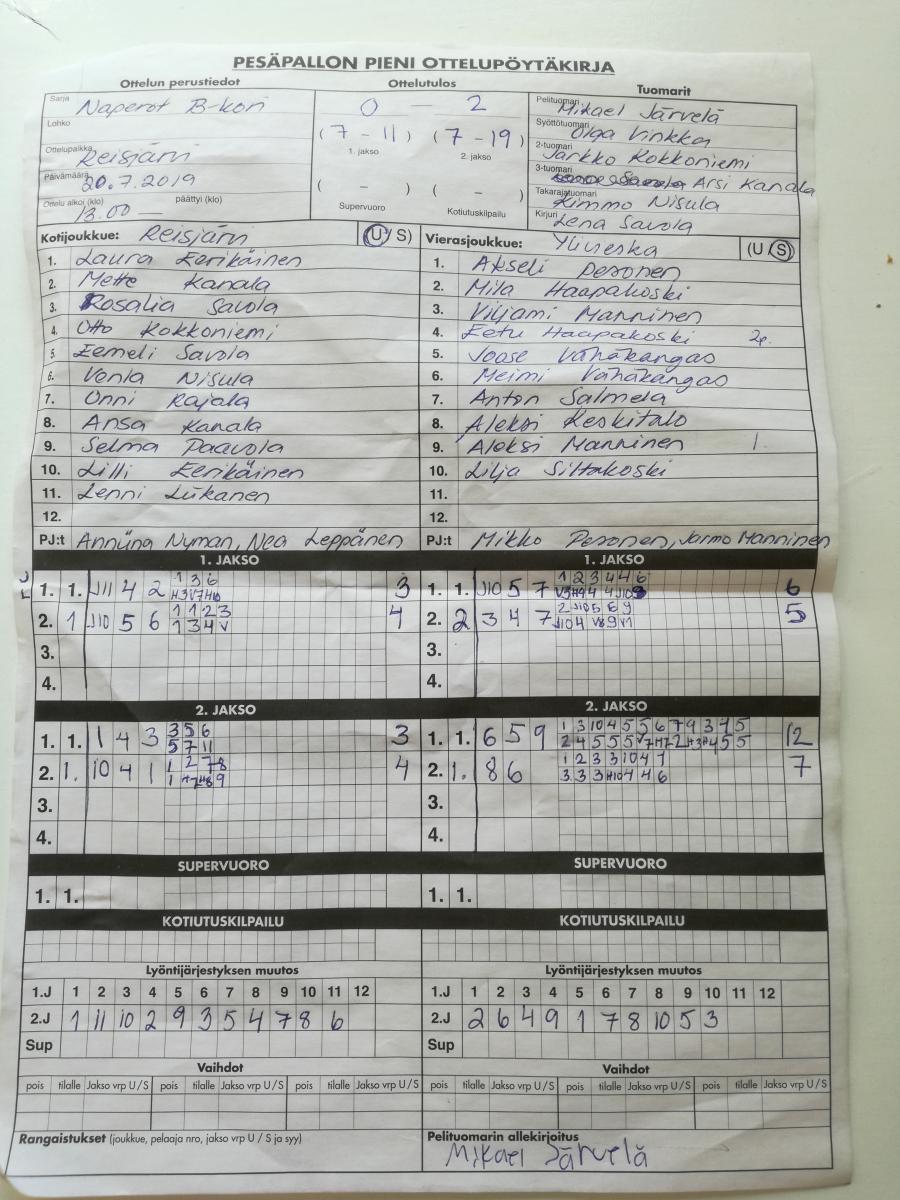 PESÄPALLON PIENI OTTELUPÖYTÄKIRJA
Ottelun perustiedot Ottelutulos Tuomarit
Sarja Naperot B-kori
0 - 2
Pelituomari Mikael Järvelä
Lohko
(7 - 11) (7 - 19)
1. jakso 2. jakso
Syöttötuomari Olga Vinkka
Ottelupaikka Reisjärvi
2-tuomari Jarkko Kokkoniemi
Päivämäärä 20.7.2019
3-tuomari Arsi Kanala
( - ) ( - )
Takarajatuomari Kimmo Nisula
Ottelu alkoi (klo) 13.00 — päättyi (klo)
Supervuoro Kotiutuskilpailu
Kirjuri Lena Savola
Kotijoukkue: Reisjärvi (U / S) Vierasjoukkue: Ylivieska (U / S)
1. Laura Eerikäinen 1. Akseli Pesonen
2. Mette Kanala 2. Mila Haapakoski
3. Rosalia Savola 3. Viljami Manninen
4. Otto Kokkoniemi 4. Eetu Haapakoski 2p.
5. Eemeli Savola 5. Joose Vähäkangas
6. Venla Nisula 6. Meimi Vähäkangas
7. Onni Rajala 7. Anton Salmela
8. Ansa Kanala 8. Aleksi Keskitalo
9. Selma Paavola 9. Aleksi Manninen 1.
10. Lilli Eerikäinen 10. Lilja Siltakoski
11. Lenni Liikanen 11.
12. 12.
PJ:t Anniina Nyman, Nea Leppänen PJ:t Mikko Pesonen, Jarmo Manninen
1. JAKSO 1. JAKSO
1. 1. J11 4 2 1 3 6 3 1. 1. J10 5 7 1 2 3 4 4 6 6
H3 V7 H10
2. 1 J10 5 6 1 1 2 3 4 2. 2 3 4 7 2 J10 5 6 9 5
1 3 4 V J10 4 V8 9 V1
3. 3.
4. 4.
2. JAKSO 2. JAKSO
1. 1. 1 4 3 3 5 6 3 1. 1. 6 5 9 1 3 10 4 5 5 6 7 9 3 4 5 12
5 7 11
2. 1. 10 4 1 1 2 7 8 4 2. 1. 8 6 1 2 3 3 10 4 7 7
3 3 3 H10 4 4 6
3. 3.
4. 4.
SUPERVUORO SUPERVUORO
1. 1. 1. 1.
KOTIUTUSKILPAILU KOTIUTUSKILPAILU
Lyöntijärjestyksen muutos Lyöntijärjestyksen muutos
1.J 1 2 3 4 5 6 7 8 9 10 11 12 1.J 1 2 3 4 5 6 7 8 9 10 11 12
2.J 1 11 10 2 9 3 5 4 7 8 6 2.J 2 6 4 9 1 7 8 10 5 3
Sup Sup
Vaihdot Vaihdot
pois tilalle Jakso vrp U / S pois tilalle Jakso vrp U / S pois tilalle Jakso vrp U / S pois tilalle Jakso vrp U / S pois tilalle Jakso vrp U / S pois tilalle Jakso vrp U / S
Rangaistukset (joukkue, pelaaja nro, jakso vrp U / S ja syy) Pelituomarin allekirjoitus
Mikael Järvelä